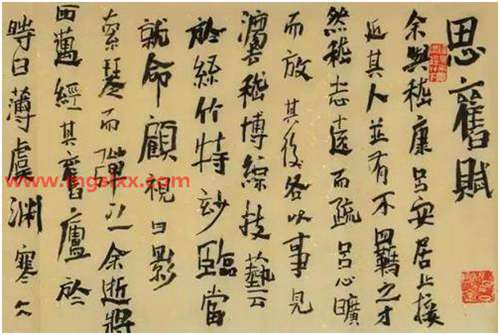 思舊賦
余與嵇康呂安居止接
近其人並有不羈之才
然嵇志遠而疏呂心曠
而放其後各以事見
嵇博綜技藝
於絲竹特妙臨當
就命顧視日影
索琴而彈之余逝將
西邁經其舊廬於
時日薄虞淵寒
www.mgsixx.com